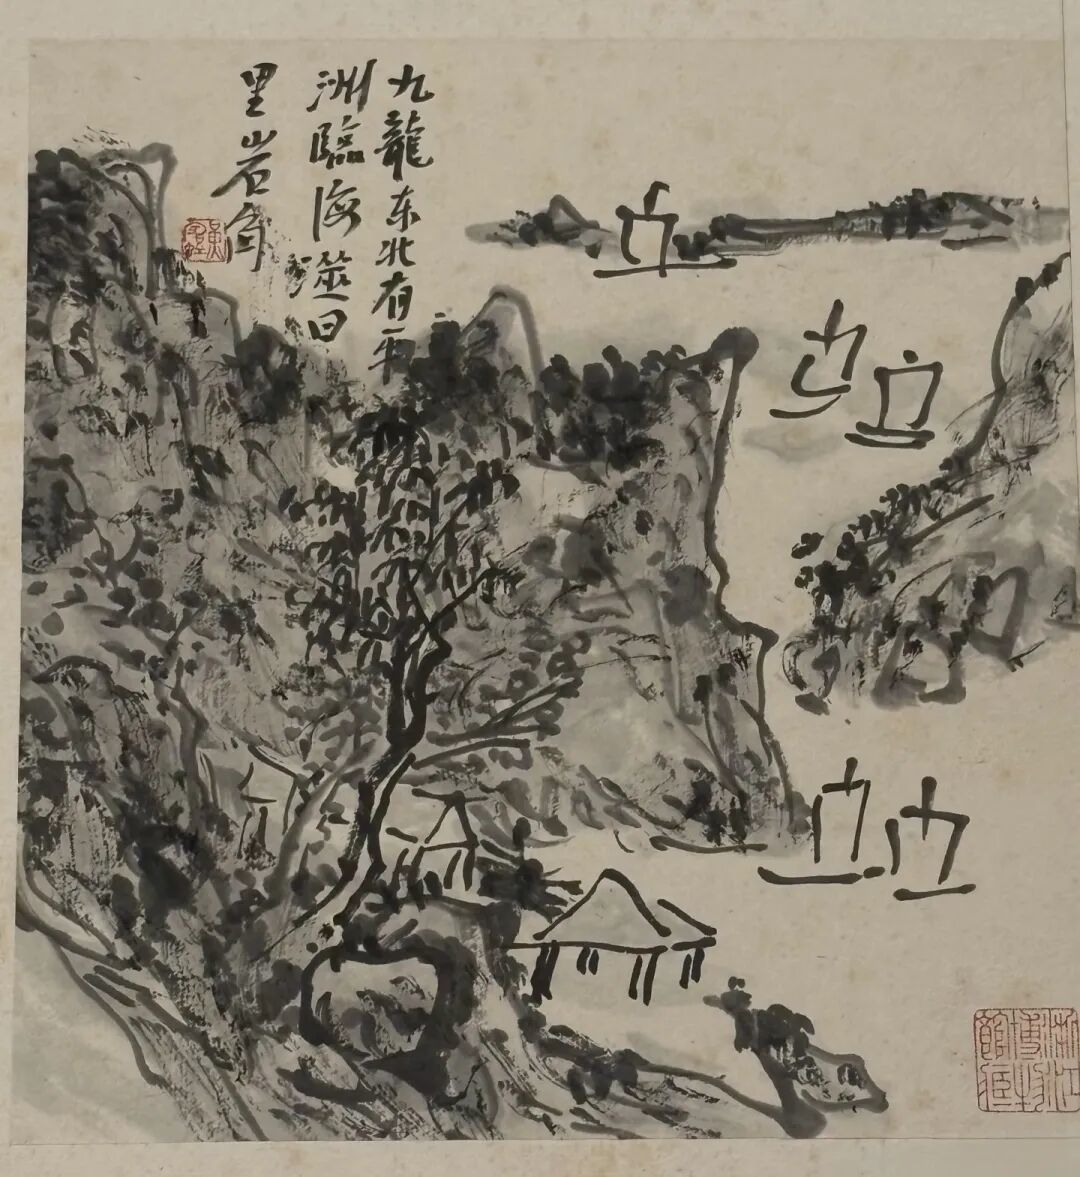 九龍东北有平
洲臨海澨曰
里岩角
黃賓虹
浙江
博物
館